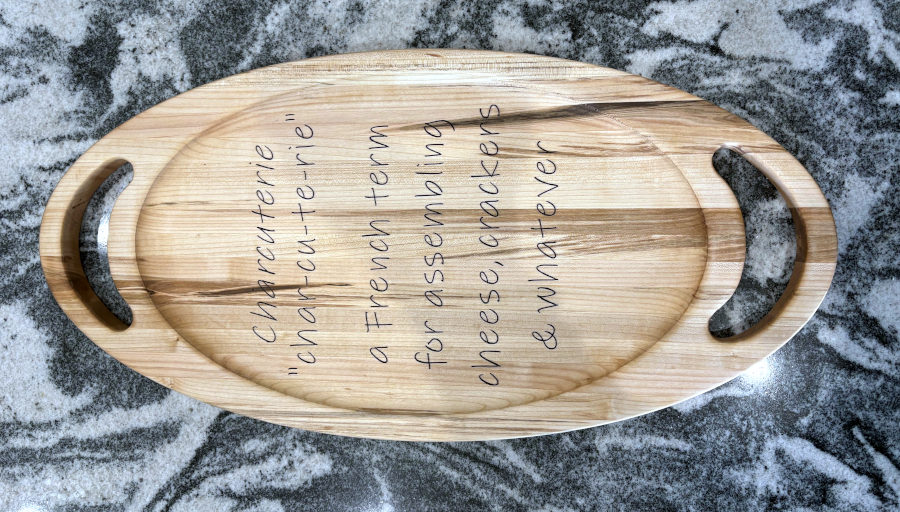 Charcuterie
"char-cu-te-rie"
a French term
for assembling
cheese, crackers
& whatever